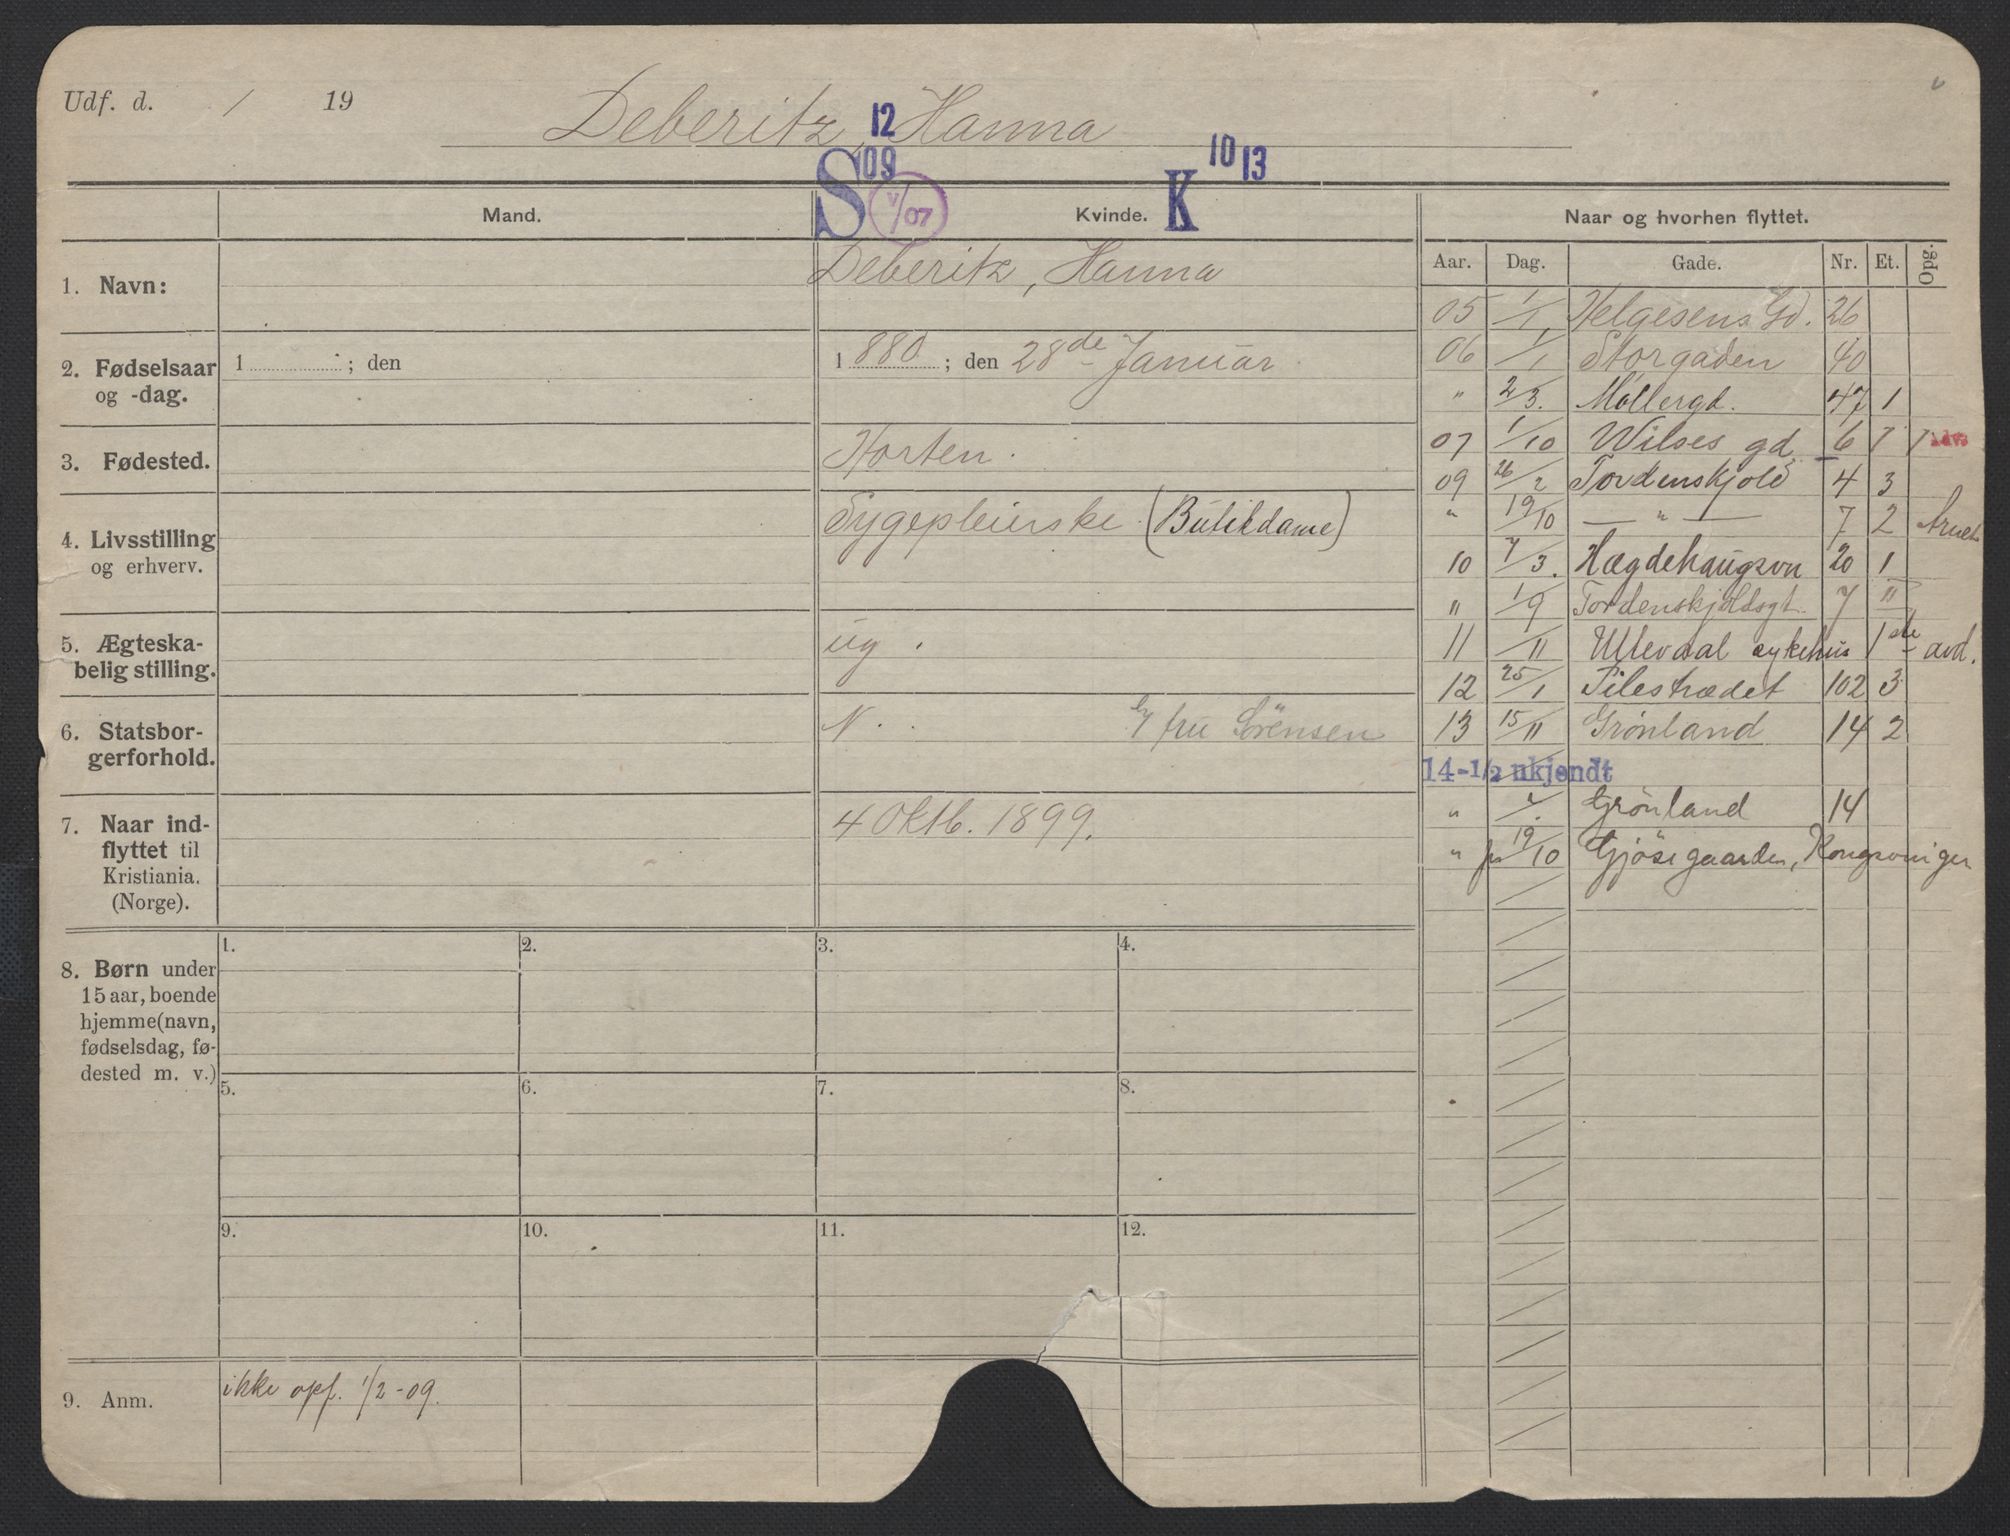 Udf. d. / 19
Deberitz, Hanna
12
S 09
V/07
K 10 13
Mand.
Kvinde.
Naar og hvorhen flyttet.
Aar. Dag. Gade. Nr. Et. Opg.
1. Navn:
Deberitz, Hanna
2. Fødselsaar og -dag.
1 ; den
1 880 ; den 28de Januar.
3. Fødested.
Horten.
4. Livsstilling og erhverv.
Sygepleierske (Butikdame)
5. Ægteska-
belig stilling.
ug.
6. Statsbor-
gerforhold.
N.
fru Sörensen
7. Naar ind-
flyttet til
Kristiania.
(Norge).
4 Oktb. 1899.
05 1/1 Helgesens Gd. 26
06 1/1 Storgaden 40
" 2/3. Möllergd. 47 1
07 1/10 Wilses gd. 6 1 1
09 26/2 Tordenskjold 4 3
" 19/10 — " — 7 2
10 7/3. Hægdehaugsvn 20 1
" 1/9 Tordenskjoldsgt. 7 II
11 /11 Ullevaal sykehus 1ste avd.
12 25/1 Pilestrædet 102 3
13 15/11 Grönland 14 2
14-1/2 ukjendt
" / Grönland 14
" 19/10 Gjösegaarden, Kongsvinger
8. Børn under
15 aar, boende
hjemme (navn,
fødselsdag, fø-
dested m. v.)
1. 2. 3. 4.
5. 6. 7. 8.
9. 10. 11. 12.
9. Anm.
ikke opf. 1/2-09.